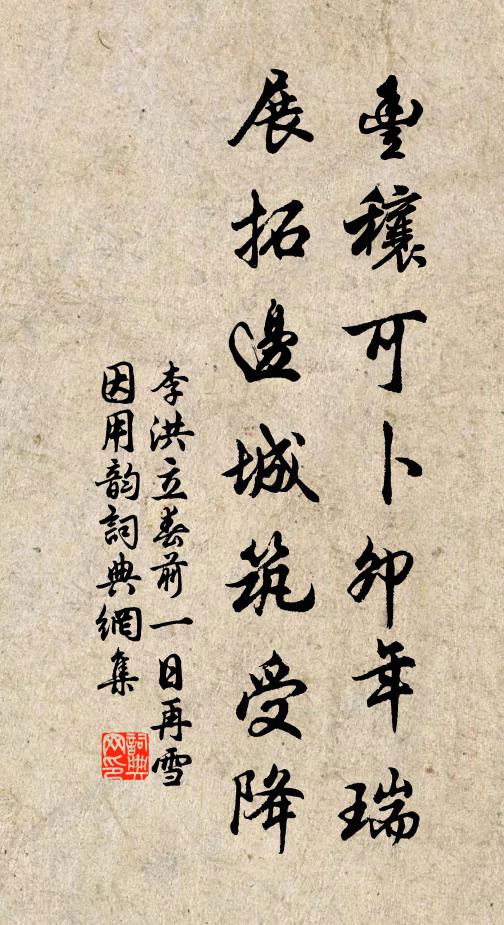 豊穰可卜卯年瑞
展拓邊城筑受降
李洪立春前一日再雪
因用韵詞典網集
詞典
网印